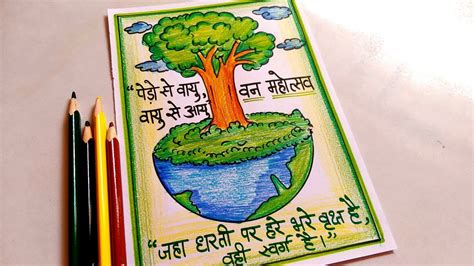 “पेड़ो से वायु,
वायु से आयु
वन महोत्सव
“जहा धरती पर हरे भरे वृक्ष है,
वही स्वर्ग है।”